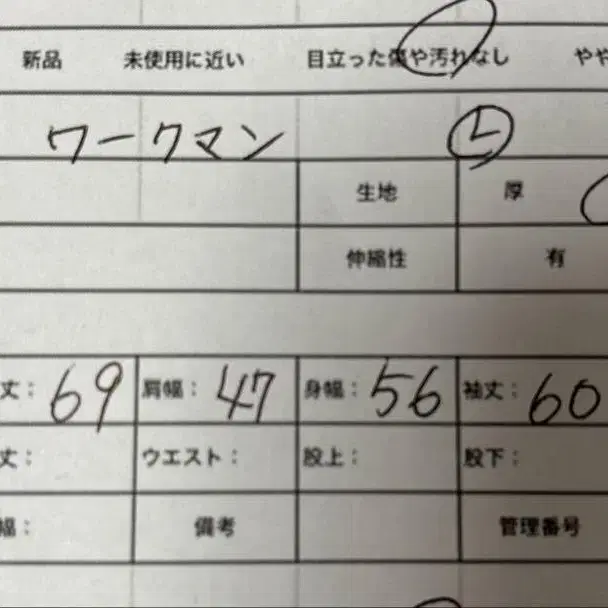 新品 未使用に近い 目立った傷や汚れなし やや
ワークマン L
生地 厚
伸縮性 有
丈: 69 肩幅: 47 身幅: 56 袖丈: 60
丈: ウエスト: 股上: 股下:
幅: 備考 管理番号